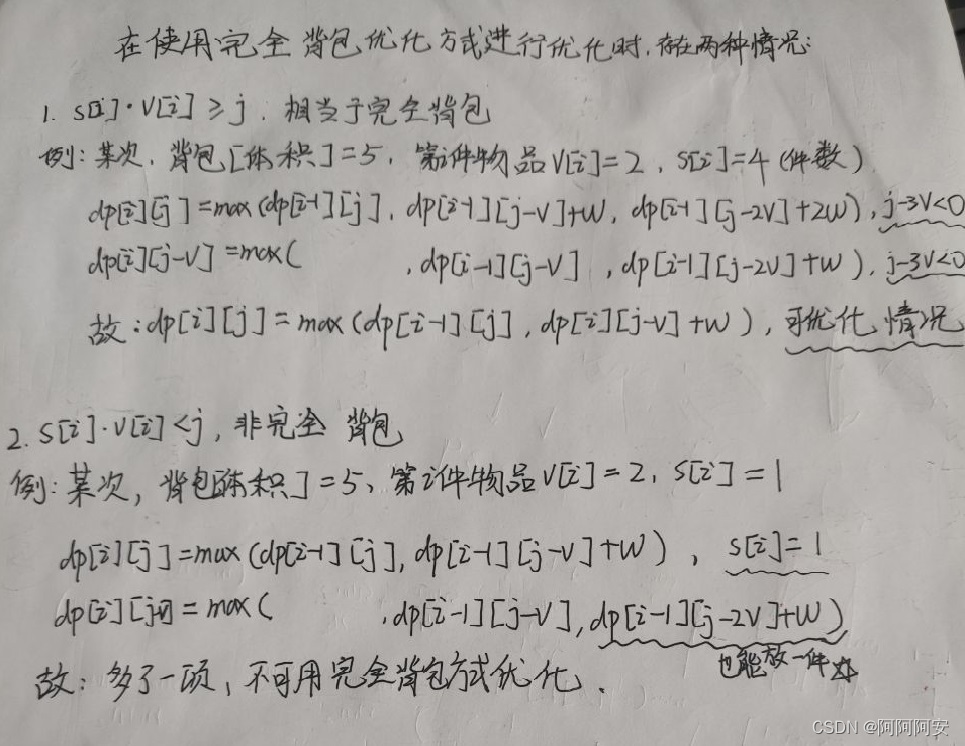 在使用完全背包优化方式进行优化时，存在两种情况：
1. s[i]·v[i] ≥ j，相当于完全背包
例：某次，背包[体积]=5，第i件物品v[i]=2，s[i]=4 (件数)
dp[i][j]=max(dp[i-1][j]，dp[i-1][j-v]+w，dp[i-1][j-2v]+2w)，j-3v<0
dp[i][j-v]=max( ，dp[i-1][j-v]，dp[i-1][j-2v]+w)，j-3v<0
故：dp[i][j]=max(dp[i-1][j]，dp[i][j-v]+w)，可优化情况
2. s[i]·v[i]<j，非完全背包
例：某次，背包[体积]=5，第i件物品v[i]=2，s[i]=1
dp[i][j]=max(dp[i-1][j]，dp[i-1][j-v]+w)，s[i]=1
dp[i][j-v]=max( ，dp[i-1][j-v]，dp[i-1][j-2v]+w)
也能放一件
故：多了一项，不可用完全背包方式优化．
CSDN @阿阿阿安